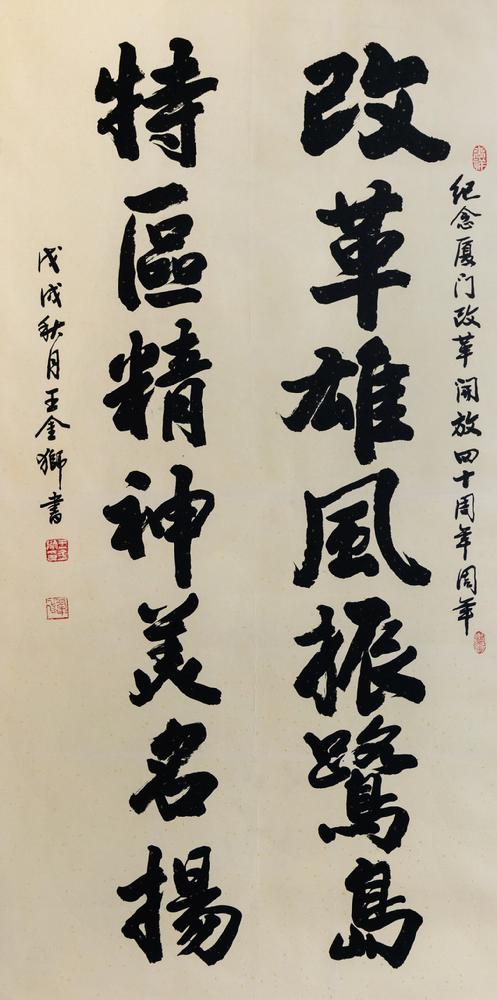 紀念厦门改革開放四十周年周年
改革雄風振鷺島
特區精神美名揚
戊戌秋月王金獅書